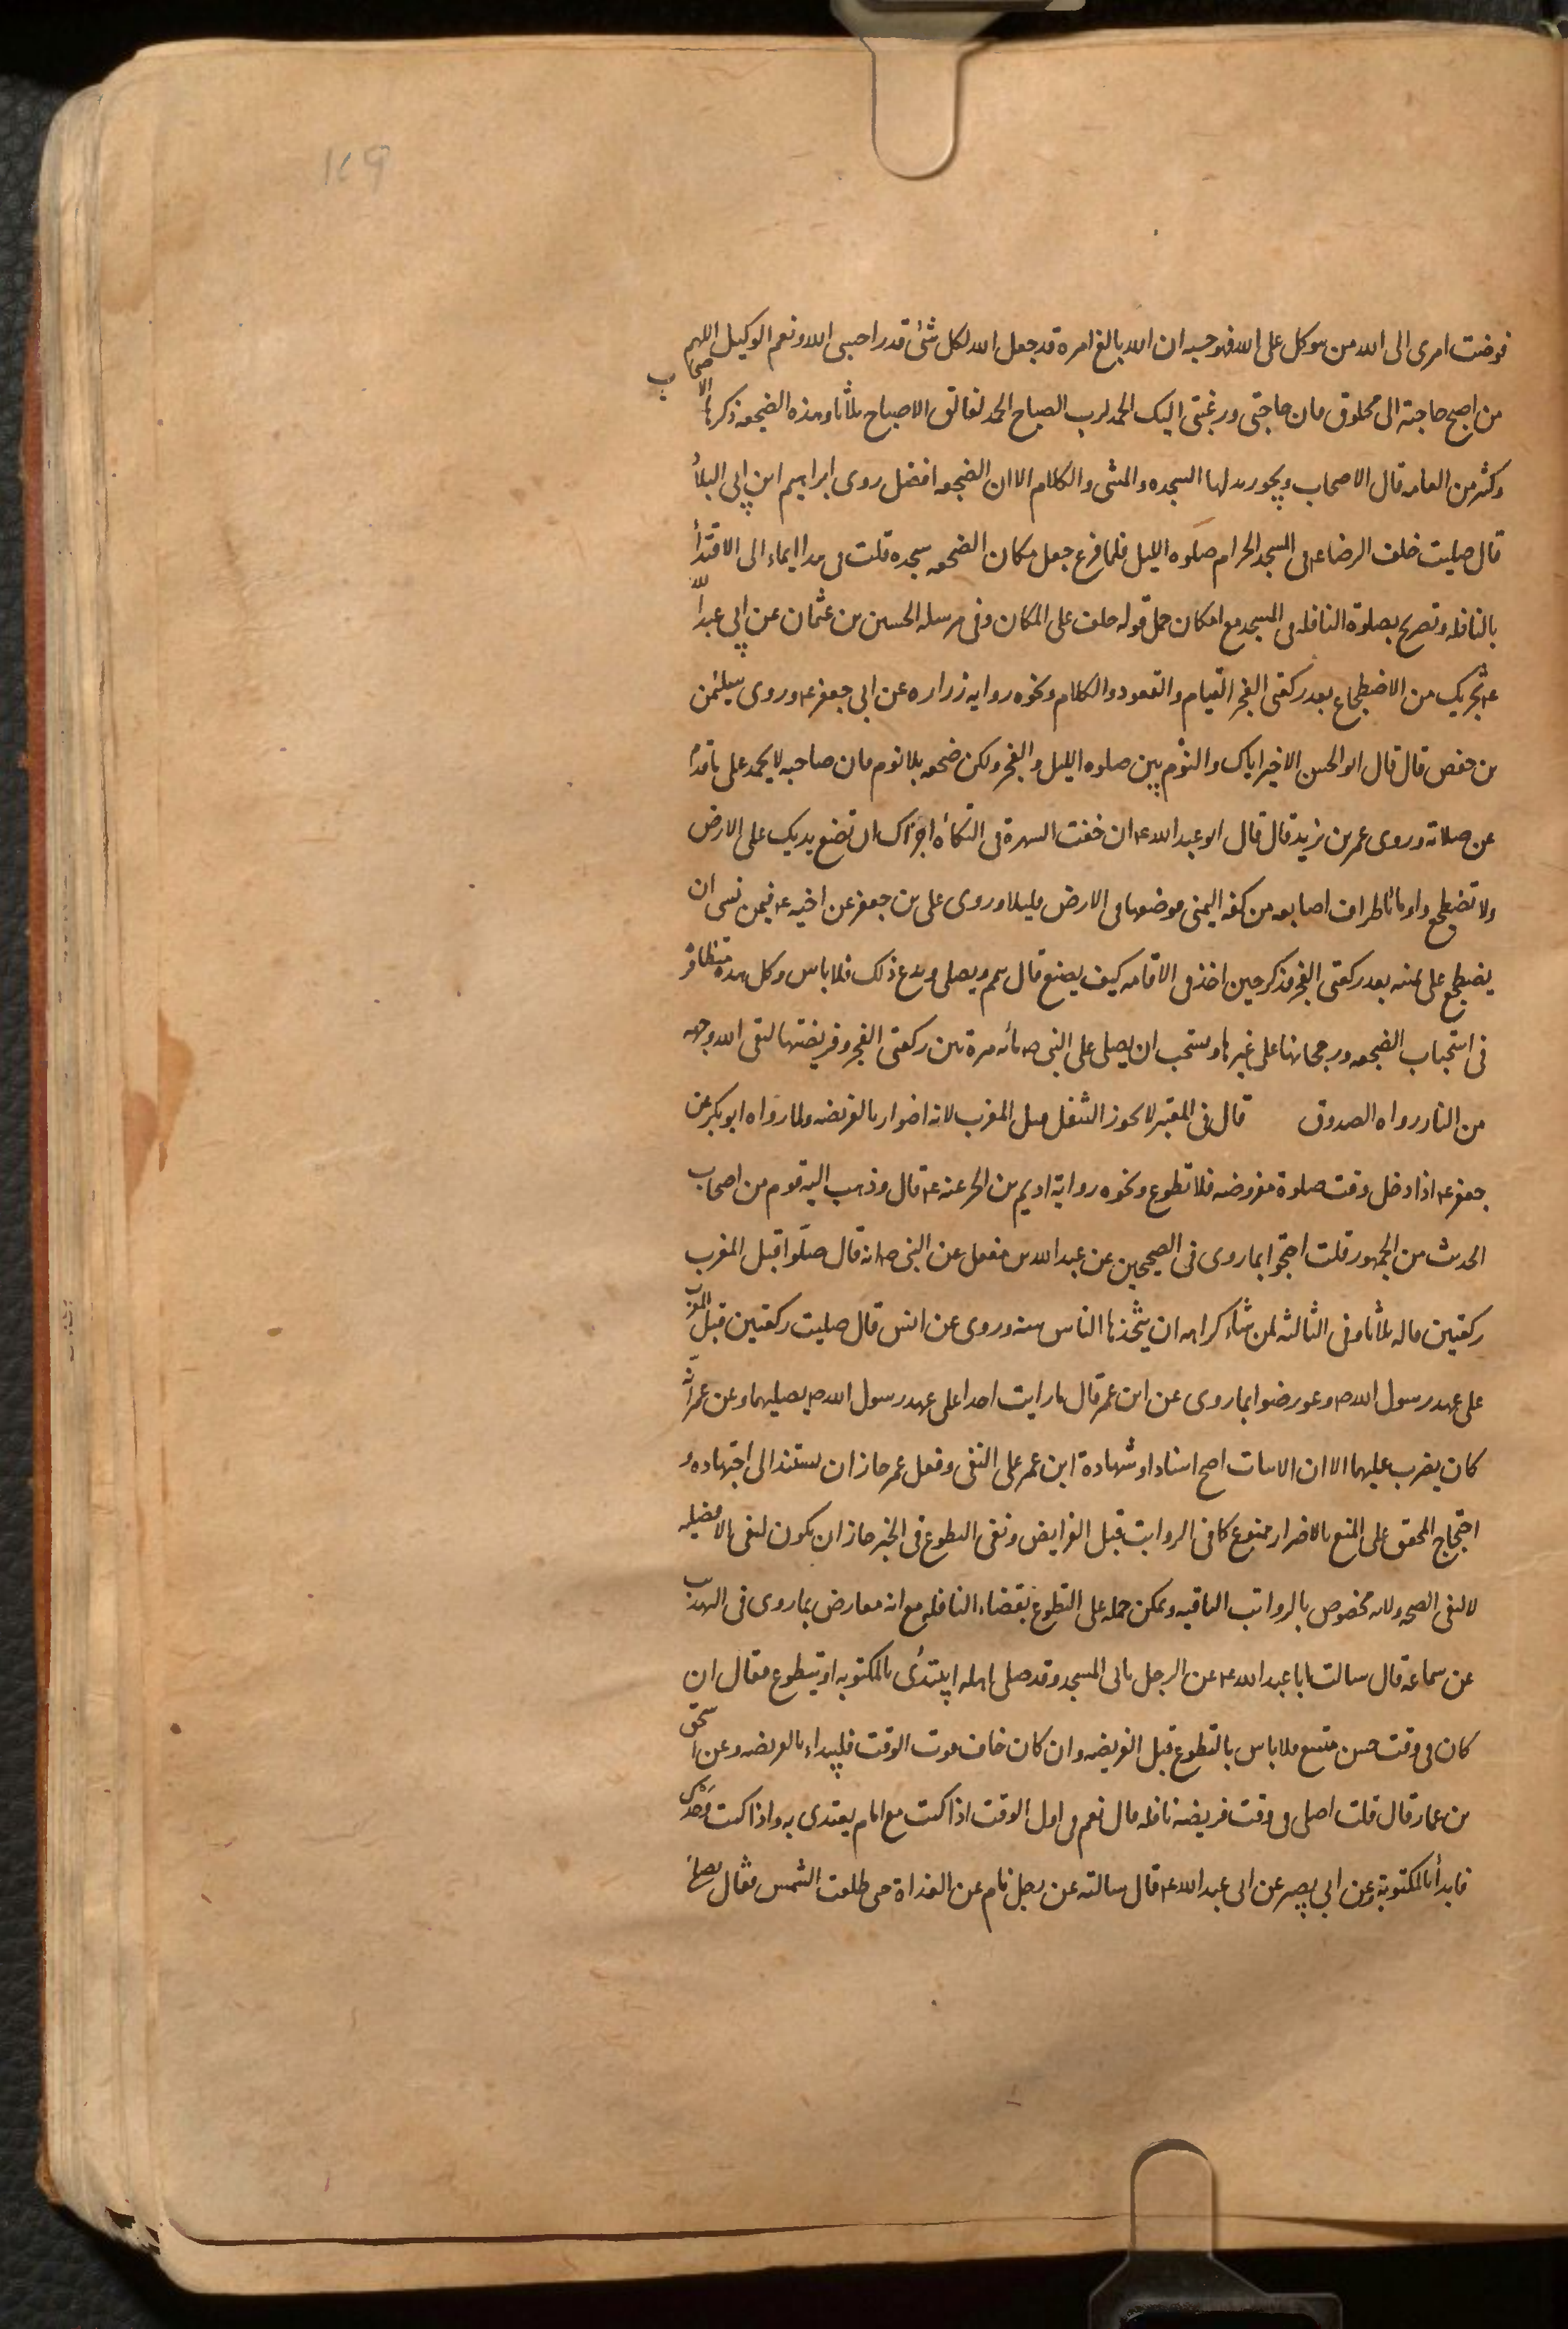 فوضت امرى الى الله من يتوكل على الله فهو حسبه ان الله بالغ امره قد جعل الله لكل شئ قدرا حسبى الله ونعم الوكيل اللهم
من اصبح حاجته الى مخلوق فان حاجتى ورغبتى اليك الحمد لرب الصباح الحمد لفالق الاصباح ثلاثا وهذه الضجعه ذكرها الاصحاب
وكثير من العامه قال الاصحاب ويجوز بدلها السجده والمشى والكلام الا ان الضجعه افضل روى ابراهيم ابن ابى البلاد
قال صليت خلف الرضا ع فى المسجد الحرام صلوه الليل فلما فرغ جعل مكان الضجعه سجده قلت فى هذا ايماء الى الاقتدا
بالنافله وتصريح بصلوة النافله فى المسجد مع امكان حمل قوله خلف على المكان وفى مرسله الحسين بن عثمان عن ابى عبد الله
ع تجزيك من الاضطجاع بعد ركعتى الفجر القيام والقعود والكلام ونحوه روايه زراره عن ابى جعفر ع وروى سليمن
بن حفص قال قال ابو الحسن الاخير اياك والنوم بين صلوه الليل والفجر ولكن ضجعه بلا نوم فان صاحبه لا يحمد على ما قدم
عن صلاته وروى عمر بن يزيد قال قال ابو عبد الله ع ان خفت الشهرة فى التكأه اجزاك ان تضع يديك على الارض
ولا تضطجع واومأ باطراف اصابعه من كفه اليمنى فوضعها فى الارض قليلا وروى على بن جعفر عن اخيه ع فيمن نسى ان
يضطجع على يمينه بعد ركعتى الفجر فذكر حين اخذ فى الاقامه كيف يصنع قال يقيم ويصلى ويدع ذلك فلا باس وكل هذه متظافره
فى استحباب الضجعه ورجحانها على غيرها ويستحب ان يصلى على النبى ص مائه مرة بين ركعتى الفجر وفريضتها ليقى الله وجهه
من النار رواه الصدوق قال فى المعتبر لا يجوز التنفل قبل المغرب لانه اضرار بالفريضه ولما رواه ابو بكر عن
جعفر ع اذا دخل وقت صلوة مفروضه فلا تطوع ونحوه رواية اديم بن الحر عنه ع قال وذهب اليه قوم من اصحاب
الحديث من الجمهور قلت احتجوا بما روى فى الصحيحين عن عبد الله بن مغفل عن النبى ص انه قال صلّوا قبل المغرب
ركعتين قاله ثلاثا وفى الثالثه لمن شاء كراهه ان يتخذها الناس سنه وروى عن انس قال صليت ركعتين قبل المغرب
على عهد رسول الله ص وعورضوا بما روى عن ابن عمر قال ما رايت احدا على عهد رسول الله ص يصليهما وعن عمر انّه
كان يضرب عليهما الا ان الاثبات اصح اسنادا وشهادة ابن عمر على النفى وفعل عمر جاز ان يستند الى اجتهاده و
احتجاج المحقق على المنع بالاضرار ممنوع كما فى الرواتب قبل الفرايض ونفى التطوع فى الخبر جاز ان يكون لنفى الافضليه
لا لنفى الصحه ولانه مخصوص بالرواتب الباقيه ويمكن حمله على التطوع بقضاء النافله مع انه معارض بما روى فى التهذيب
عن سماعه قال سالت ابا عبد الله ع عن الرجل ياتى المسجد وقد صلى اهله ايبتدى بالمكتوبه او يتطوع فقال ان
كان فى وقت حسن متسع فلا باس بالتطوع قبل الفريضه وان كان خاف فوت الوقت فليبداء بالفريضه وعن اسحق
بن عمار قال قلت اصلى فى وقت فريضه نافله قال نعم فى اول الوقت اذا كنت مع امام يقتدى به واذا كنت وحدك
فابدأ بالمكتوبة وعن ابى بصير عن ابى عبد الله ع قال سالته عن رجل نام عن الغداة حتى طلعت الشمس فقال يصلى